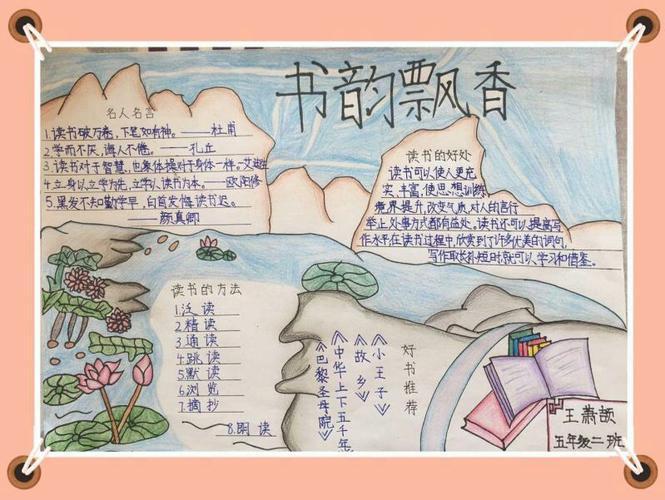 书韵飘香
名人名言
1.读书破万卷,下笔如有神。——杜甫
2.学而不厌,诲人不倦。——孔丘
3.读书对于智慧,也象体操对于身体一样。——艾迪生
4.立身以立学为先,立学以读书为本。——欧阳修
5.黑发不知勤学早,白首方悔读书迟。
——颜真卿
读书的好处
读书可以使人更充
实、丰富,使思想训练
境界提升,改变气质,对人的言行
举止处事方式都有益处,读书还可以提高写
作水平在读书过程中,欣赏到了许多优美的词句,
写作取长补短时,就可以学习和借鉴。
读书的方法
1.泛读
2.精读
3.通读
4.跳读
5.默读
6.浏览
7.摘抄
8.朗读
好书推荐
《小王子》
《故乡》
《中华上下五千年》
《巴黎圣母院》
王萧
五年级二班